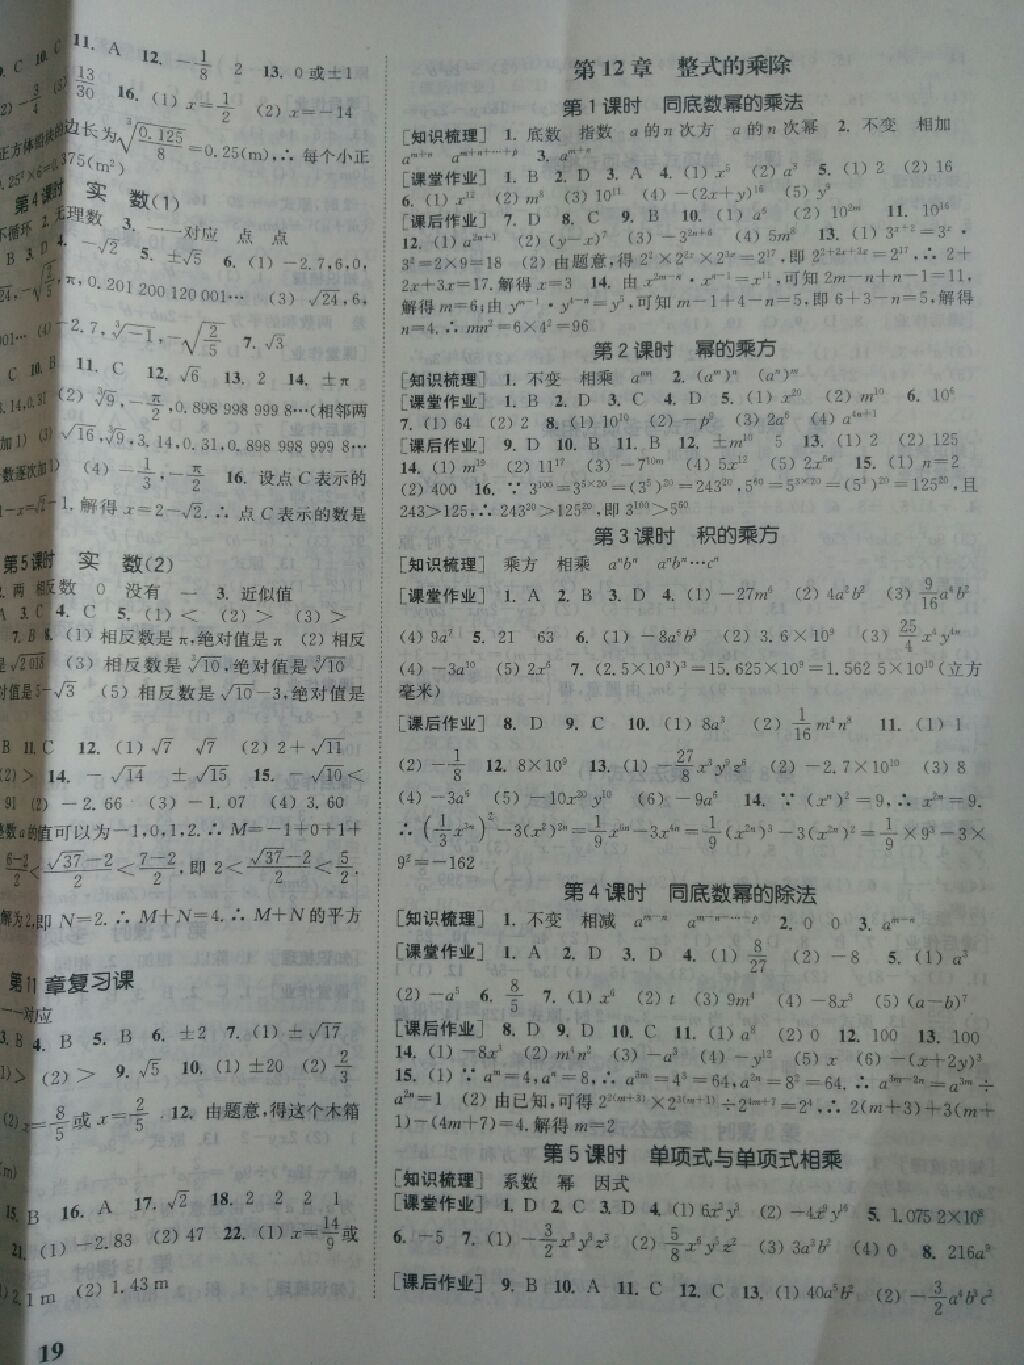 11. A 12. －1/8 2 13. 0或±1
13/30 16. (1) x＝1/2 (2) x＝－14
正方体铅块的边长为∛(0.125/8)＝0.25(m),∴ 每个小正
0.25²×6＝0.375(m²)
第4课时 实 数(1)
不循环 2. 无理数 3. 一一对应 点 点
B 3. D 4. －√2 5. ±√5 6. (1) －2,7,6,0,
π,0.201 200 120 001… (3) √24,6,
－2,7,∛－1,－√(2/5) 7. √3
C 10. B 11. C 12. √6 13. 2 14. ±π
3.14,0.31 (2) ∛9,－π/2,0.898 998 999 8…(相邻两
加1) (3) √16,∛9,3.14,0.31,0.898 998 999 8…
数逐次加1) (4) －1/3,－π/2 16. 设点C表示的
1－x＝√2－1,解得 x＝2－√2.∴ 点C表示的数是
第5课时 实 数(2)
两 相反数 0 没有 一 3. 近似值
A 3. C 4. C 5. (1) ＜ (2) ＞ (3) ＞
7. B 8. (1) 相反数是π,绝对值是π (2) 相反
是√2013 (3) 相反数是∛10,绝对值是∛10
对值是5－√3 (5) 相反数是√10－3,绝对值是
B 11. C 12. (1) √7 √7 (2) 2＋√11
(2) ＞ 14. －√14 ±√15 15. －√10＜
91 (2) －2.66 (3) －1.07 (4) 3.60
整数a的值可以为－1,0,1,2.∴ M＝－1＋0＋1＋
(6－2)/2＜(√37－2)/2＜(7－2)/2,即 2＜(√37－2)/2＜5/2.
解为2,即 N＝2.∴ M＋N＝4.∴ M＋N的平方
第11章复习课
一一对应
3. B 4. B 5. B 6. ±2 7. (1) ±√17
(2) ＞ 9. √5 10. (1) ±20 (2) 2/3
(2) x＝－8/5或 x＝2/5 12. 由题意,得这个木箱
(m)
15. B 16. A 17. √2 18. 2 2 2 1
21. (1) －2.83 (2) 47 22. (1) x＝14/9或
2.1 m (2) 1.43 m
19
第12章 整式的乘除
第1课时 同底数幂的乘法
[知识梳理] 1. 底数 指数 a的n次方 a的n次幂 2. 不变 相加
aᵐ⁺ⁿ aᵐ⁺ⁿ⁺…⁺ᵖ 3. aᵐ⁺ⁿ
[课堂作业] 1. B 2. D 3. A 4. (1) x⁵ (2) a⁸ 5. (1) 2 (2) 16
6. (1) x¹² (2) m⁸ (3) 10¹¹ (4) －(2x＋y)¹⁶ (5) y⁹
[课后作业] 7. D 8. C 9. B 10. (1) a⁶ (2) 10²ᵐ 11. 10¹⁶
12. (1) a²ⁿ⁺¹ (2) (y－x)⁷ (3) －3²ⁿ⁺⁶ (4) 5m⁸ 13. (1) 3ˣ⁺²＝3ˣ·
3²＝2×9＝18 (2) 由题意,得 2²×2²ˣ×2³ˣ＝2¹⁷,即 2²⁺²ˣ⁺³ˣ＝2¹⁷,∴ 2＋
2x＋3x＝17.解得 x＝3 14. 由 x²ᵐ⁻ⁿ·xⁿ⁻¹＝x¹¹,可知 2m－n＋n－1＝11,
解得 m＝6;由 yᵐ⁻¹·y⁴⁻ⁿ＝y⁵,可知 m－1＋4－n＝5,即 6＋3－n＝5,解得
n＝4.∴ mn²＝6×4²＝96
第2课时 幂的乘方
[知识梳理] 1. 不变 相乘 aᵐⁿ 2. (aᵐ)ⁿ (aⁿ)ᵐ
[课堂作业] 1. B 2. D 3. C 4. D 5. (1) x²⁰ (2) m¹⁰ 6. 10⁶
7. (1) 64 (2) 2 8. (1) 10¹⁰ (2) －p⁹ (3) 2a⁶ (4) a⁴ⁿ⁺¹
[课后作业] 9. D 10. B 11. B 12. ±m¹⁰ 5 13. (1) 2 (2) 125
14. (1) m¹⁹ (2) 11¹⁷ (3) －7¹⁰ᵐ (4) 5x¹² (5) 2x⁶ⁿ 15. (1) n＝2
(2) 400 16. ∵ 3¹⁰⁰＝3⁵ˣ²⁰＝(3⁵)²⁰＝243²⁰,5⁶⁰＝5³ˣ²⁰＝(5³)²⁰＝125²⁰,且
243＞125,∴ 243²⁰＞125²⁰,即 3¹⁰⁰＞5⁶⁰
第3课时 积的乘方
[知识梳理] 乘方 相乘 aⁿbⁿ aⁿbⁿ…cⁿ
[课堂作业] 1. A 2. B 3. D 4. (1) －27m⁶ (2) 4a²b² (3) 9/16 a⁴b²
(4) 9a² 5. 21 63 6. (1) －8a⁶b³ (2) 3.6×10⁹ (3) 25/4 x⁴y⁴ᵐ
(4) －3a¹⁰ (5) 2x⁶ 7. (2.5×10³)³＝15.625×10⁹＝1.562 5×10¹⁰(立方
毫米)
[课后作业] 8. D 9. C 10. (1) 8a³ (2) 1/16 m⁴n⁸ 11. (1) 1
(2) －1/8 12. 8×10⁹ 13. (1) －27/8 x³y⁹z⁶ (2) －2.7×10¹⁰ (3) 8
(4) －3a⁶ (5) －10x²⁰y¹⁰ (6) －9a⁶ 14. ∵ (xⁿ)²＝9,∴ x²ⁿ＝9.
∴ (1/3 x³ⁿ)²－3(x²)²ⁿ＝1/9 x⁶ⁿ－3x⁴ⁿ＝1/9 (x²ⁿ)³－3(x²ⁿ)²＝1/9×9³－3×
9²＝－162
第4课时 同底数幂的除法
[知识梳理] 1. 不变 相减 aᵐ⁻ⁿ aᵐ⁻ⁿ⁻…⁻ᵖ 2. 0 0 3. aᵐ⁻ⁿ
[课堂作业] 1. A 2. D 3. D 4. (1) 8/27 (2) －8 5. (1) a³
(2) －a⁵ 6. 8/5 7. (1) x⁶ (2) t (3) 9m⁴ (4) －8x³ (5) (a－b)⁷
[课后作业] 8. D 9. D 10. C 11. (1) a⁸ (2) 0 12. 100 13. 100
14. (1) －8x³ (2) m⁴n² (3) －a³ (4) －y¹² (5) x (6) －(x＋2y)³
15. (1) ∵ aᵐ＝4,aⁿ＝8,∴ a³ᵐ＝4³＝64,a²ⁿ＝8²＝64.∴ a³ᵐ⁻²ⁿ＝a³ᵐ÷
a²ⁿ＝1 (2) 由已知,可得 2²⁽ᵐ⁺³⁾×2³⁽ᵐ⁺¹⁾÷2⁴ᵐ⁺⁷＝2⁴.∴ 2(m＋3)＋3(m＋
1)－(4m＋7)＝4.解得 m＝2
第5课时 单项式与单项式相乘
[知识梳理] 系数 幂 因式
[课堂作业] 1. D 2. C 3. D 4. (1) 6x²y³ (2) －4x⁹y¹⁶ 5. 1.075 2×10⁸
6. －5 7. (1) －3/2 x³y³z³ (2) 5/8 x⁶y⁵z² (3) 3a³b² (4) 0 8. 216a⁹
[课后作业] 9. B 10. A 11. C 12. C 13. (1) 40a⁵b² (2) －3/2 a⁴b³c²